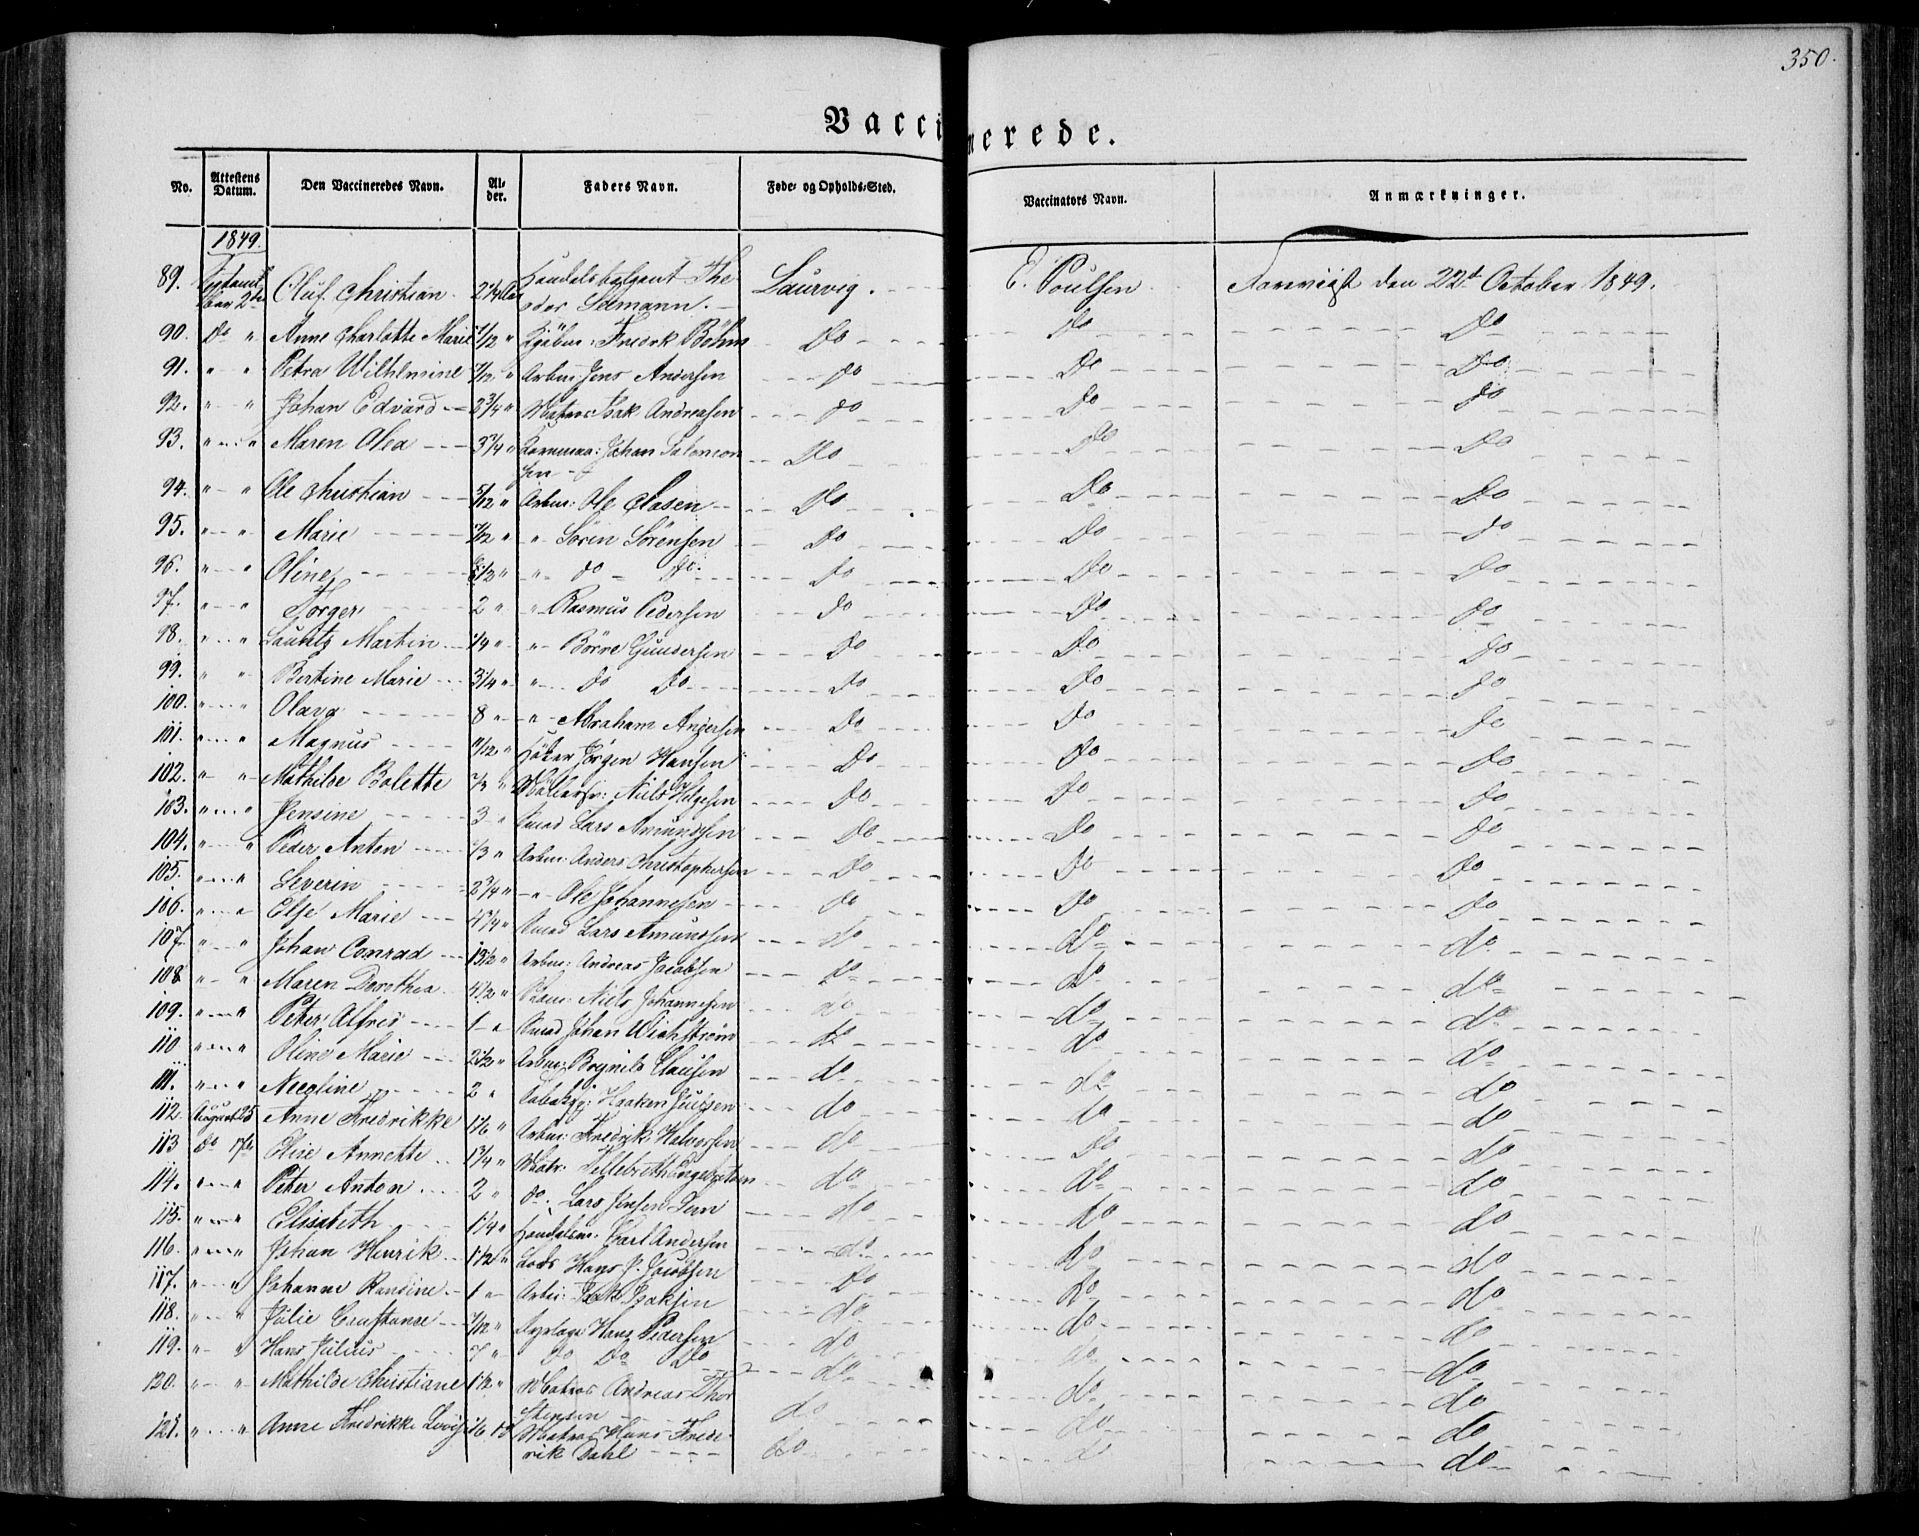 350.
Vaccinerede.
No. Attestens Datum. Den Vaccineredes Navn. Alder. Faders Navn. Føde- og Opholds-Sted. Vaccinators Navn. Anmærkninger.
1849.
89. September 2de Oluf Christian. 2 1/4 Aar Handelsbetjent Theodor Selmann. Laurvig. E. Poulsen Foreviist den 22de October 1849.
90. Do " Anne Charlotte Marie 1/2 " Kjøbm: Fredrk Böhm Do Do Do
91. " " Petra Wilhelmine 7/12 " Arbm: Jens Andersen do Do Do
92. " " Johan Edvard 2 3/4 " Matros Isak Andreasen do Do do
93. " " Maren Olea 3 3/4 " Johan Salomonsen Do Do Do
94. " " Ole Christian 5/12 " Arbm: Ole Clasen Do Do Do
95. " " Marie 1/2 " " Sörin Sörensen Do Do do
96. " " Oline 5 1/2 " " do do. Do Do Do
97. " " Torger 2 " " Rasmus Pedersen do Do do
98. " " Lauritz Martin 1/4 " " Börre Gundersen Do Do Do
99. " " Bertine Marie 3 1/4 " " Do Do Do Do do
100. " " Olava 8 " " Abraham Andersen Do Do do
101. " " Magnus 11/12 " Höker Jörgen Hansen Do Do Do
102. " " Mathilde Bolette " Möllersv: Niels Helgesen Do Do Do
103. " " Jensine 3 " Smed Lars Amundsen Do Do Do
104. " " Peder Anton 1/3 " Arbm: Anders Christophersen Do Do Do
105. " " Severin 2 3/4 " " Ole Johannesen do Do Do
106. " " Else Marie 4 3/4 " Smed Lars Amundsen do Do do
107. " " Johan Conrad 13 1/2 " Arbm: Andreas Jacobsen do do do
108. " " Maren Dorothea 4 1/2 " Niels Johannesen do do do
109. " " Peter Alfred 1 " Smed Johan Wichström do do do
110 " " Oline Marie 2 1/2 " Arbm: Clausen do do do
111. " " Nicoline 2 " Haaken Juelsen do do do
112. August 25 Anne Fredrikke 1 1/6 " Arbm: Fredrik Halvorsen do do do
113 Do 17de Elise Annette 1 3/4 " Matr. Engebretsen do Do do
114. " " Peter Anton 2 " do. Lars Jensen do do do
115. " " Elisabeth 1 1/4 " Handelsm: Carl Andersen do do do
116. " " Johan Henrik 1 1/2 " Lods Hans P. Jacobsen Do do do
117. " " Johanne Ransine 1 " Arbm: Isak Isaksen do do do
118. " " Julie Constance 7/12 " Hans Pedersen do do do
119. " " Hans Julius 7 " Do Do Do do do do
120. " " Mathilde Christiane 1 1/2 " Matros Andreas Thorstensen do do do
121. " " Anne Fredrikke Lovise 1/6 Do Matros Hans Frederik Dahl do do do